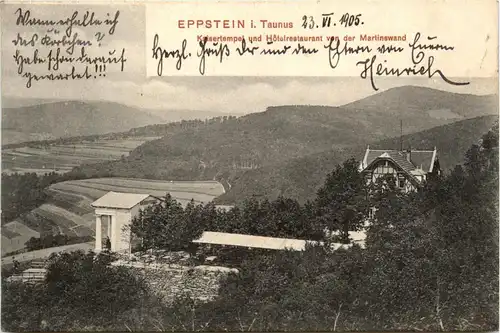 Wann erhalte ich
das Körbchen?
Habe schon darauf
gewartet!!!
EPPSTEIN i. Taunus 23. VI 1905.
Kaisertempel und Hôtelrestaurant von der Martinswand
Herzl. Gruß Dir und den Eltern von Euern
Heinrich